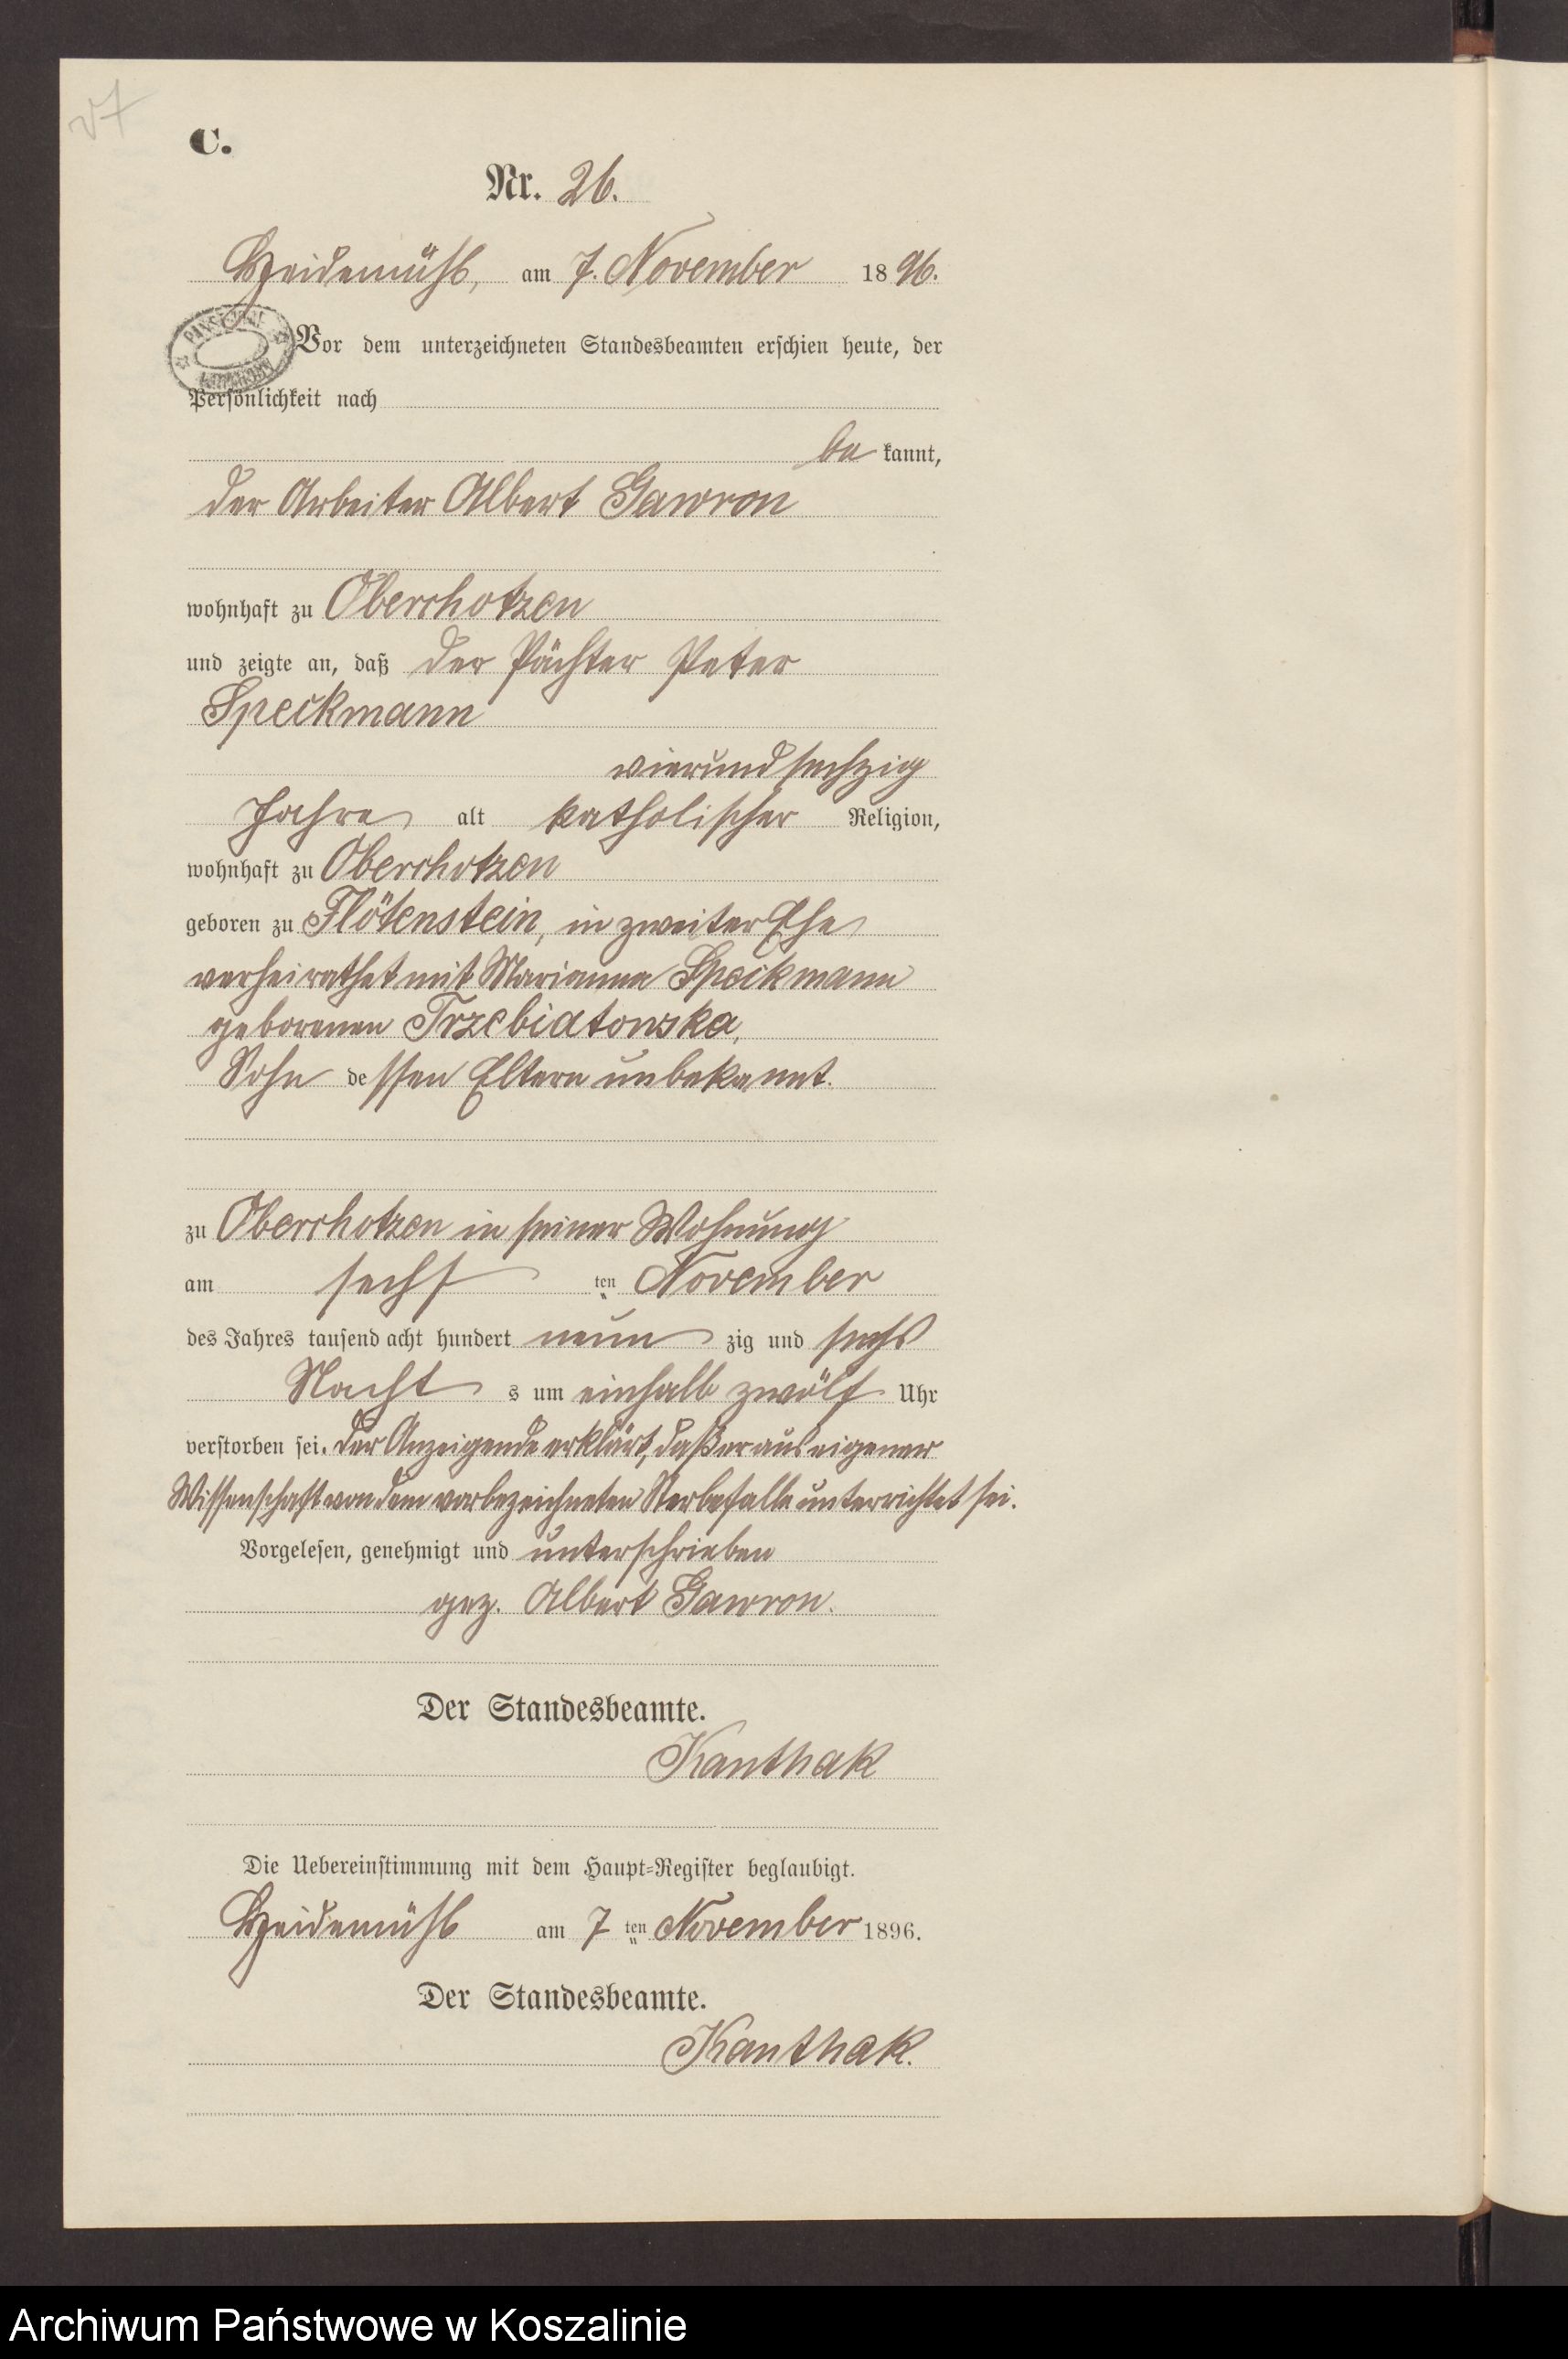 27
C.
Nr. 26.
Heidemühl, am 7. November 1896.
Vor dem unterzeichneten Standesbeamten erschien heute, der
Persönlichkeit nach
bekannt,
der Arbeiter Albert Gawron
wohnhaft zu Oberchotzen
und zeigte an, daß der Pächter Peter
Speckmann
vierundsechzig
Jahre alt katholischer Religion,
wohnhaft zu Oberchotzen
geboren zu Flötenstein, in zweiter Ehe
verheirathet mit Marianna Speckmann
geborenen Trzebiatowska,
Sohn dessen Eltern unbekannt.
zu Oberchotzen in seiner Wohnung
am sechsten November
des Jahres tausend acht hundert neunzig und sechs
Nachts um einhalb zwölf Uhr
verstorben sei. Der Anzeigende erklärt, daß er aus eigener
Wissenschaft von dem vorbezeichneten Sterbefalle unterrichtet sei.
Vorgelesen, genehmigt und unterschrieben
gez. Albert Gawron.
Der Standesbeamte.
Kanthak
Die Uebereinstimmung mit dem Haupt=Register beglaubigt.
Heidemühl am 7ten November 1896.
Der Standesbeamte.
Kanthak.
Archiwum Państwowe w Koszalinie